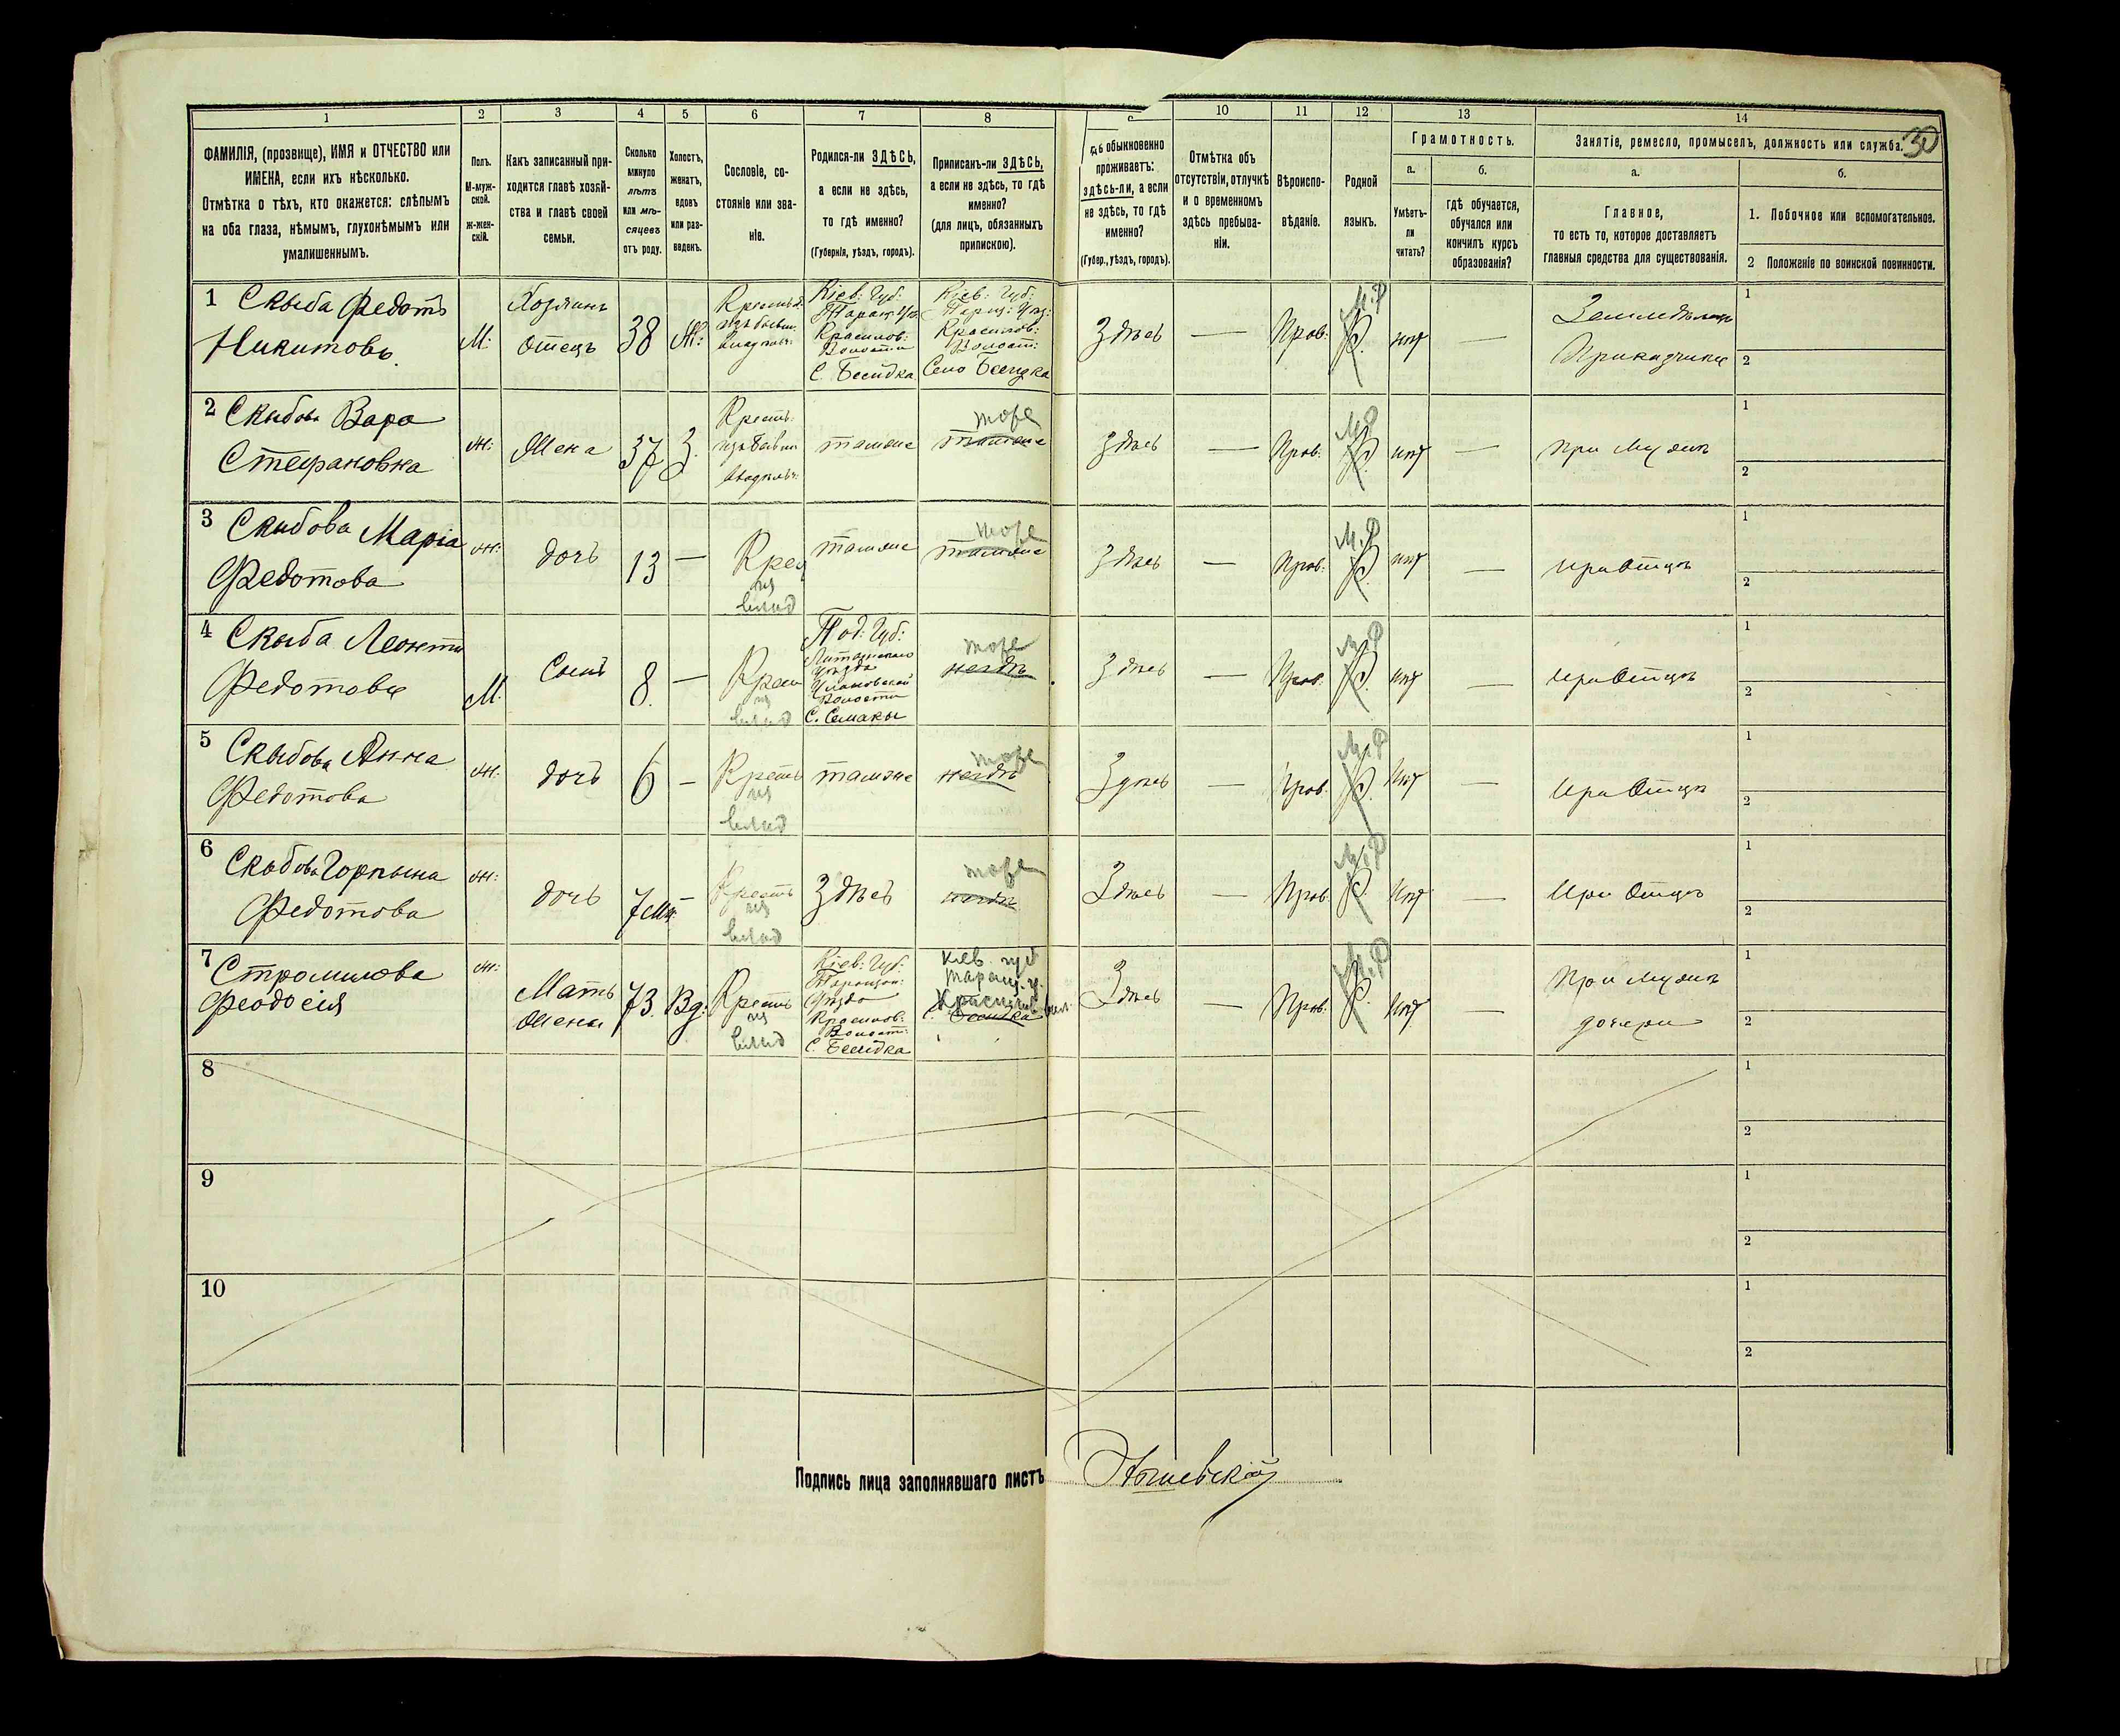 30
1
2
3
4
5
6
7
8
10
11
12
13
14
ФАМИЛІЯ, (прозвище), ИМЯ и ОТЧЕСТВО или
ИМЕНА, если ихъ нѣсколько.
Отмѣтка о тѣхъ, кто окажется: слѣпымъ
на оба глаза, нѣмымъ, глухонѣмымъ или
умалишеннымъ.
Полъ.
М-муж-
ской.
ж-жен-
скій.
Какъ записанный при-
ходится главѣ хозяй-
ства и главѣ своей
семьи.
Сколько
минуло
лѣтъ
или мѣ-
сяцевъ
отъ роду.
Холостъ,
женатъ,
вдовъ
или раз-
веденъ.
Сословіе, со-
стояніе или зва-
ніе.
Родился-ли ЗДѢСЬ,
а если не здѣсь,
то гдѣ именно?
(Губернія, уѣздъ, городъ).
Приписанъ-ли ЗДѢСЬ,
а если не здѣсь, то гдѣ
именно?
(для лицъ, обязанныхъ
припискою).
гдѣ обыкновенно
проживаетъ:
здѣсь-ли, а если
не здѣсь, то гдѣ
именно?
(Губер., уѣздъ, городъ).
Отмѣтка объ
отсутствіи, отлучкѣ
и о временномъ
здѣсь пребыва-
ніи.
Вѣроиспо-
вѣданіе.
Родной
языкъ.
Грамотность.
а.
Умѣетъ-
ли
читать?
б.
гдѣ обучается,
обучался или
кончилъ курсъ
образованія?
Занятіе, ремесло, промыселъ, должность или служба.
а.
Главное,
то есть то, которое доставляетъ
главныя средства для существованія.
б.
1. Побочное или вспомогательное.
2 Положеніе по воинской повинности.
1 Скыба Федотъ
Никитовъ
М:
Хозяинъ
отецъ
38
Ж:
Кіев: Губ:
Таращ: Уѣз:
Красилов:
Волости
С. Бесидка
Кіев: Губ:
Таращ: Уѣз:
Красилов:
Волост:
Село Бесидка
Здѣсь
—
Прав:
М.Р
Р.
нѣт
—
Земледѣлецъ
1
2
2 Скыбова Вара
Стефановна
Ж:
Жена
37
З.
Кресть
тамже
тоже
тамже
здѣсь
—
Прав:
М.Р
Р.
нѣт
—
при мужѣ
1
2
3 Скыбова Марія
Федотова
Ж:
дочь
13
—
Крес
из
влад
тамже
тоже
тамже
Здѣсь
—
Прав:
М.Р
Р.
нѣт
—
при отцѣ
1
2
4 Скыба Леонти
Федотовъ
М.
Сынъ
8.
—
Крест
из
влад
Под: Губ:
Уѣзда
Волости
С. Семакы
тоже
Здѣсь
—
Прав:
М.Р
Р.
нѣт
—
при отцѣ
1
2
5 Скыбова Анна
Федотова
Ж:
дочь
6
—
Кресть
из
влад
тамже
тоже
Здѣсь
—
Прав.
М.Р
Р.
нѣт
—
при отцѣ
1
2
6 Скыбова Горпына
Федотова
Ж:
дочь
7 мц
—
Кресть
из
влад
Здѣсь
тоже
Здѣсь
—
Прав.
М.Р
Р.
нѣт
—
при отцѣ
1
2
7 Стромилова
Феодосія
Ж:
Мать
жены
73.
Вд:
Кресть
из
влад
Кіев: Губ:
Таращан:
Уѣзда
Красилов:
Волост:
С. Бесидка
Кіев. губ
Таращ. у.
Красилов вол.
С. Бесидка
Здѣсь
—
Прав:
М.Р
Р.
нѣт
—
При мужѣ
дочери
1
2
8
1
2
9
1
2
10
1
2
Подпись лица заполнявшаго листъ